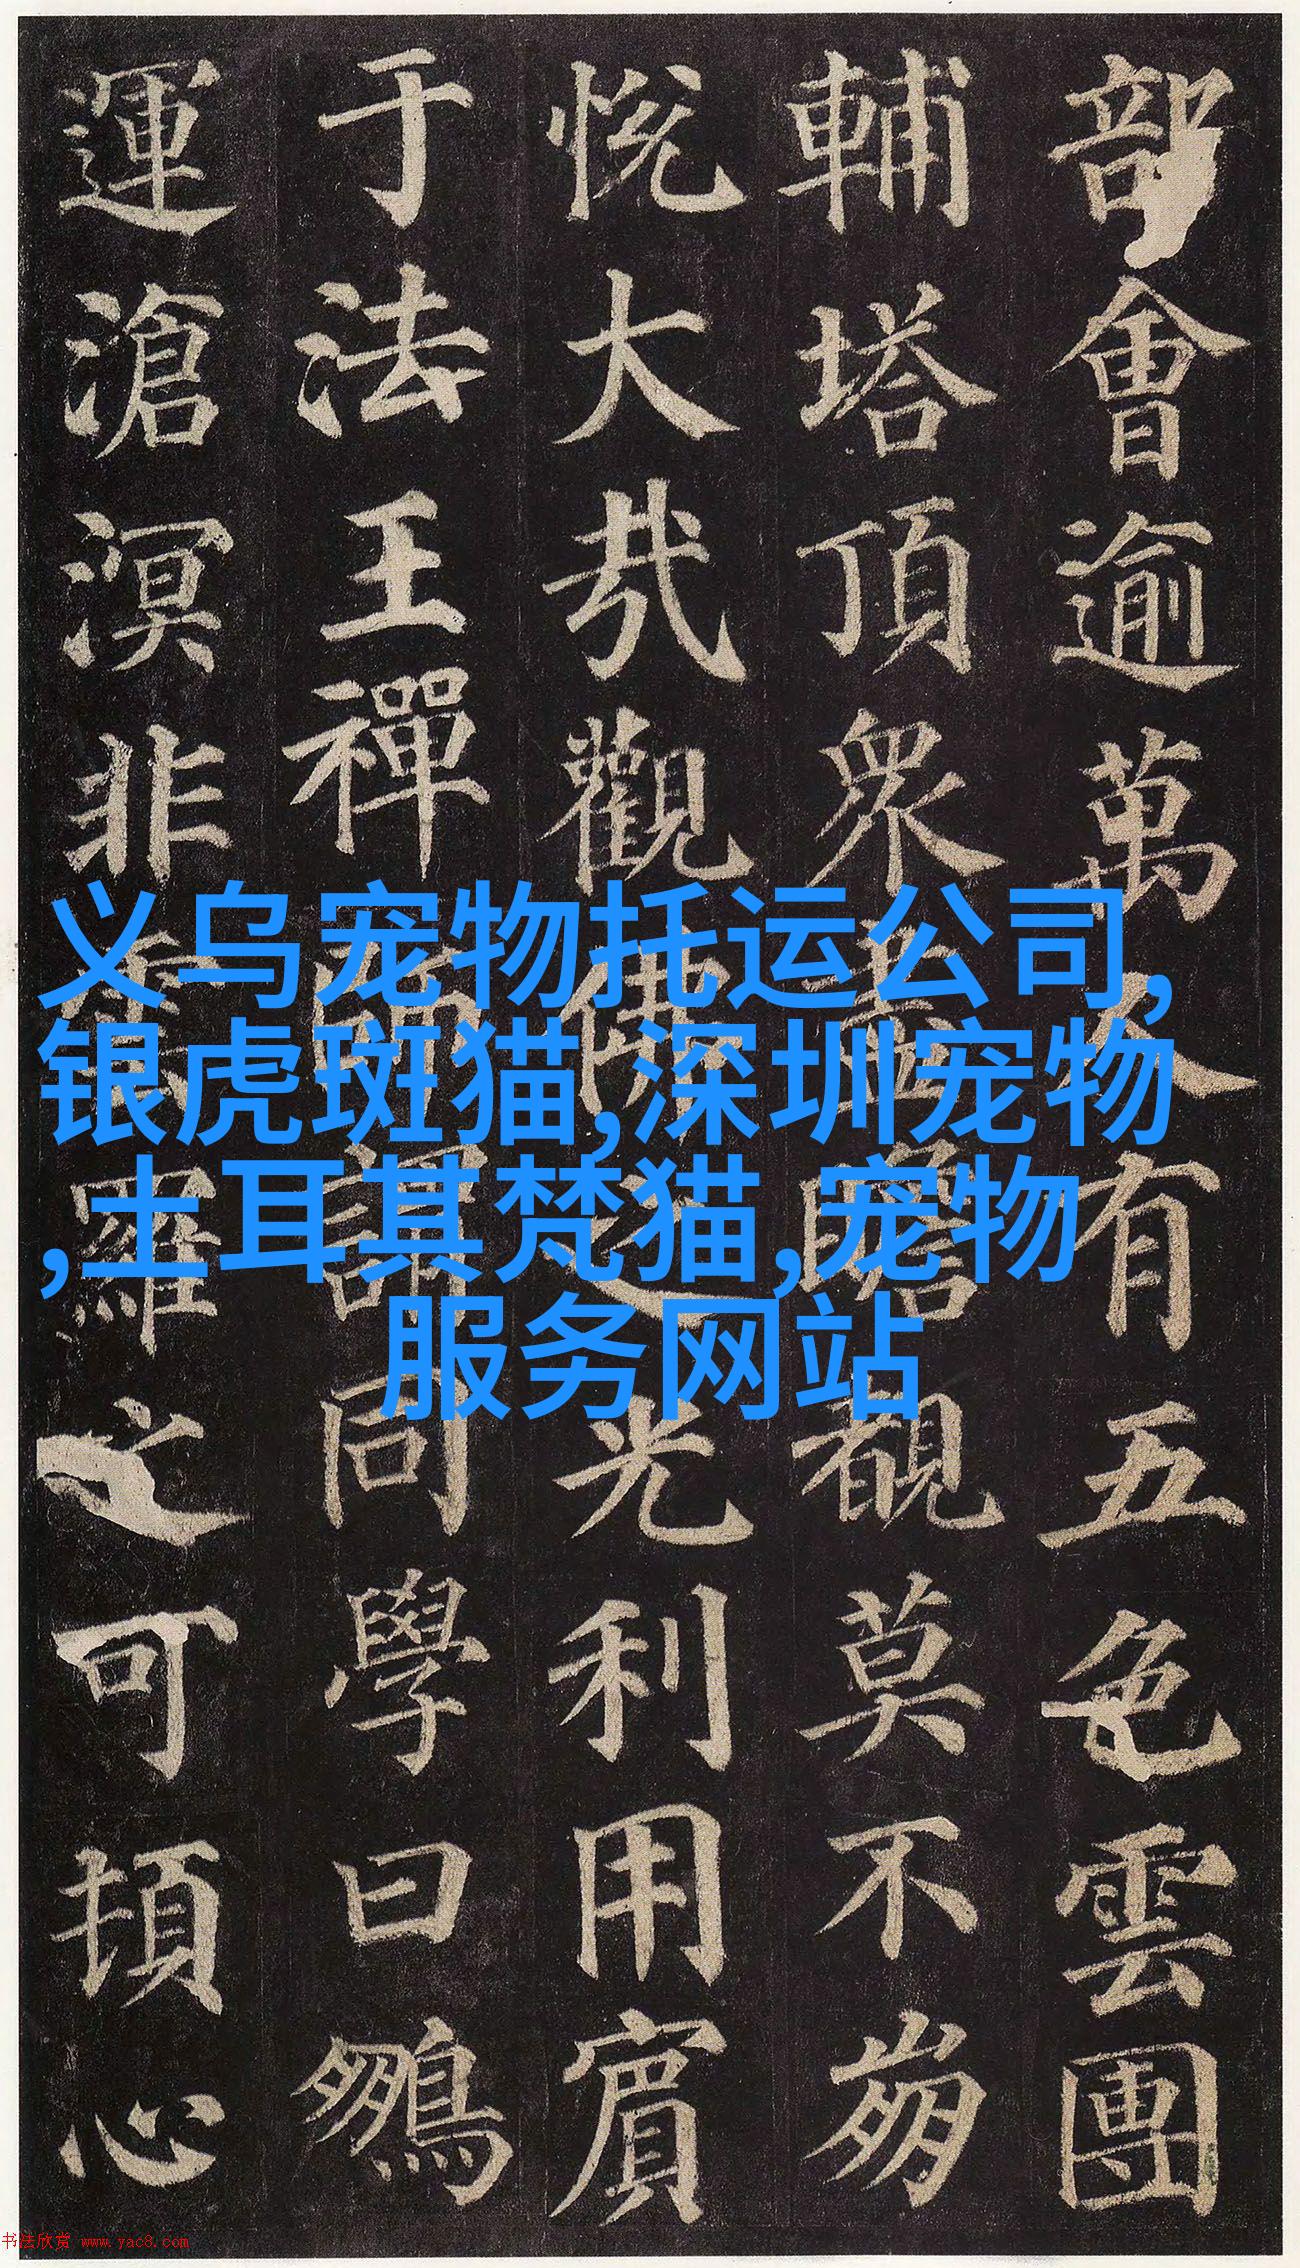 部會逾萬人有五色雲團
輔塔頂眾盡瞻覩莫不崩
悅大哉觀佛之光利用賓
于法王禪師謂同學曰鵬
運滄溟非雲羅之可頓心
义乌宠物托运公司,
银虎斑猫,深圳宠物
,土耳其梵猫,宠物
服务网站
书法欣赏 www.yac8.com